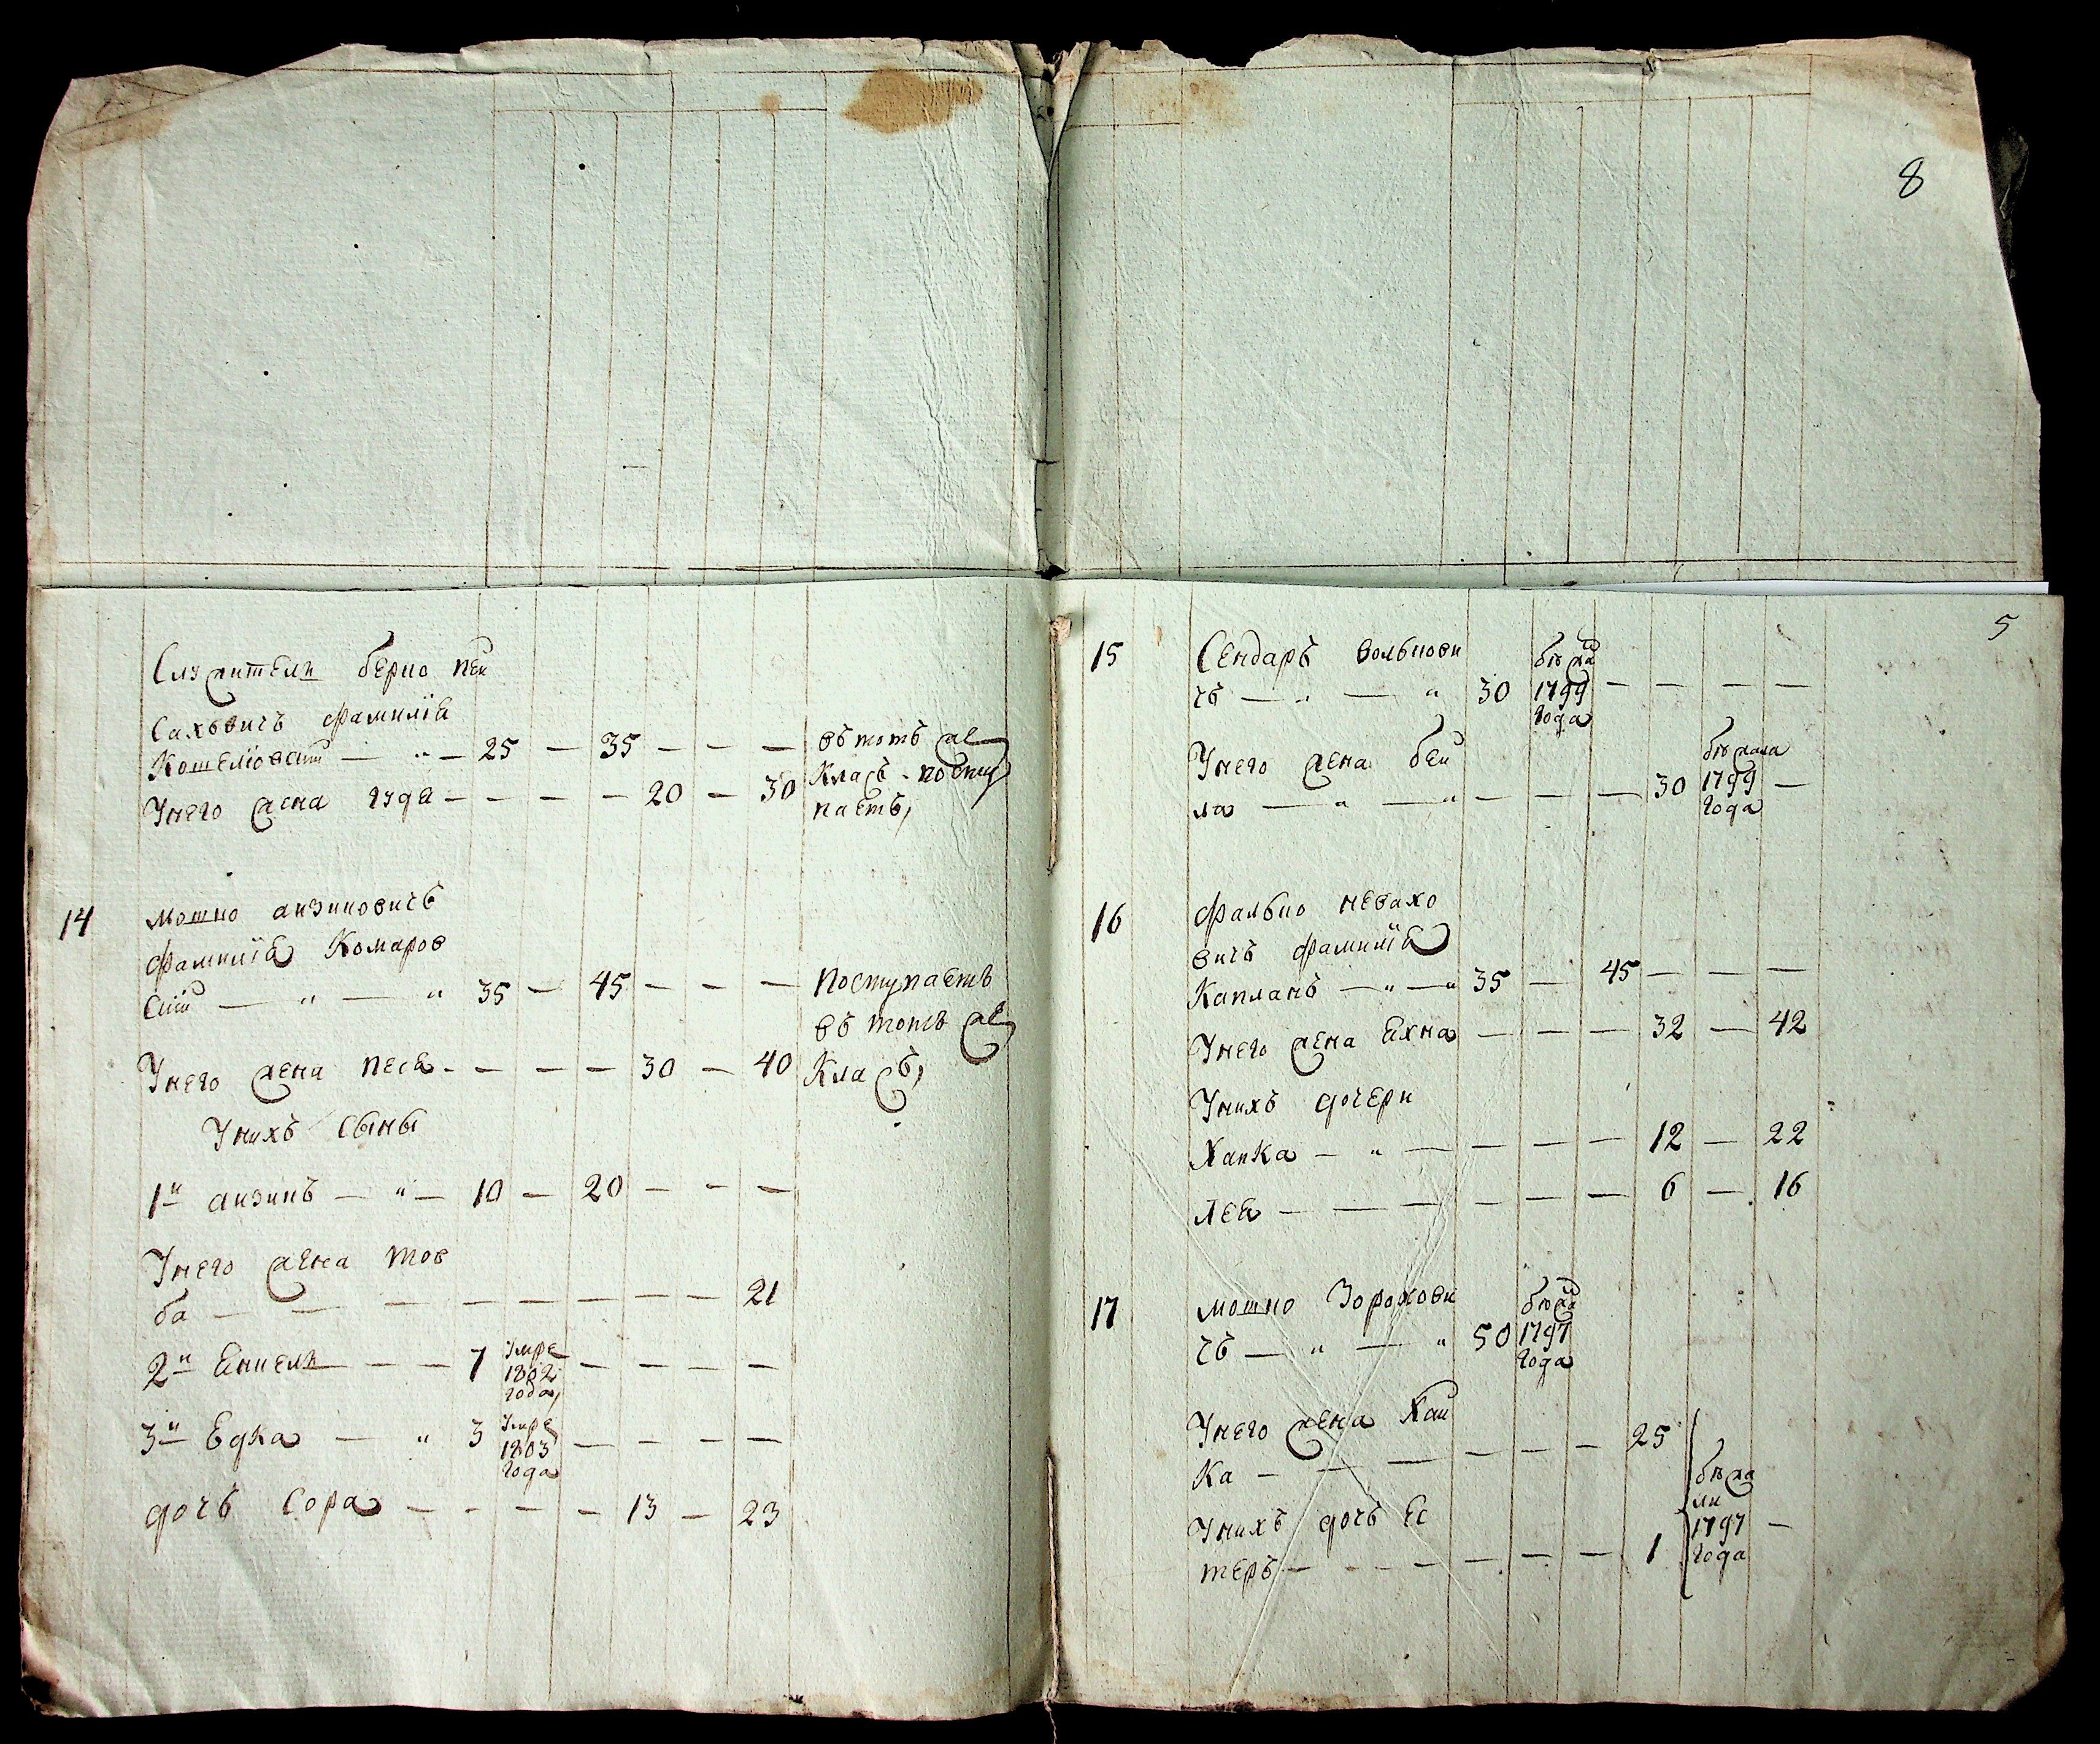 8
5
Служители берко пеи
Сахъвичъ фамилїя
Кошелювскїй — " — 25 — 35 — — — вътотъ же
Класъ поступ
Унего жена гудя — — — — 20 — 30 паетъ,
14 мошко аизиковичъ
фамилїя Комаров
скїй — " — " 35 — 45 — — — поступаетъ
вътотъ же
Унего жена песя — — — — 30 — 40 Класъ,
Унихъ сыны
1й аизикъ — " — 10 — 20 — — —
Унего жена тов
ба — — — — — — — — 21
2й Янкель — — — 7 Умре 1802 года, — — — —
3й Едка — " 3 Умре 1803 года — — — —
дочь Сора — — — — 13 — 23
15 Сендаръ вольфови
чъ — " — " 30 бежа 1799 года — — — —
Унего жена беи
ла — " — " — — — 30 бежала 1799 года —
16 фалько невахо
вичъ фамилїя
Капланъ — " — " 35 — 45 — — —
Унего жена Яхна — — — 32 — 42
Унихъ дочери
Хаика — " — — — — 12 — 22
Лея — — — — — — 6 — 16
17 мошко Зороховы
чъ — " — " 50 1797 года
Унего жена Хаи
Ка — — — — — — 25
бежа
ли
Унихъ дочь Ес
1797
теръ — — — — — — — 1 года —